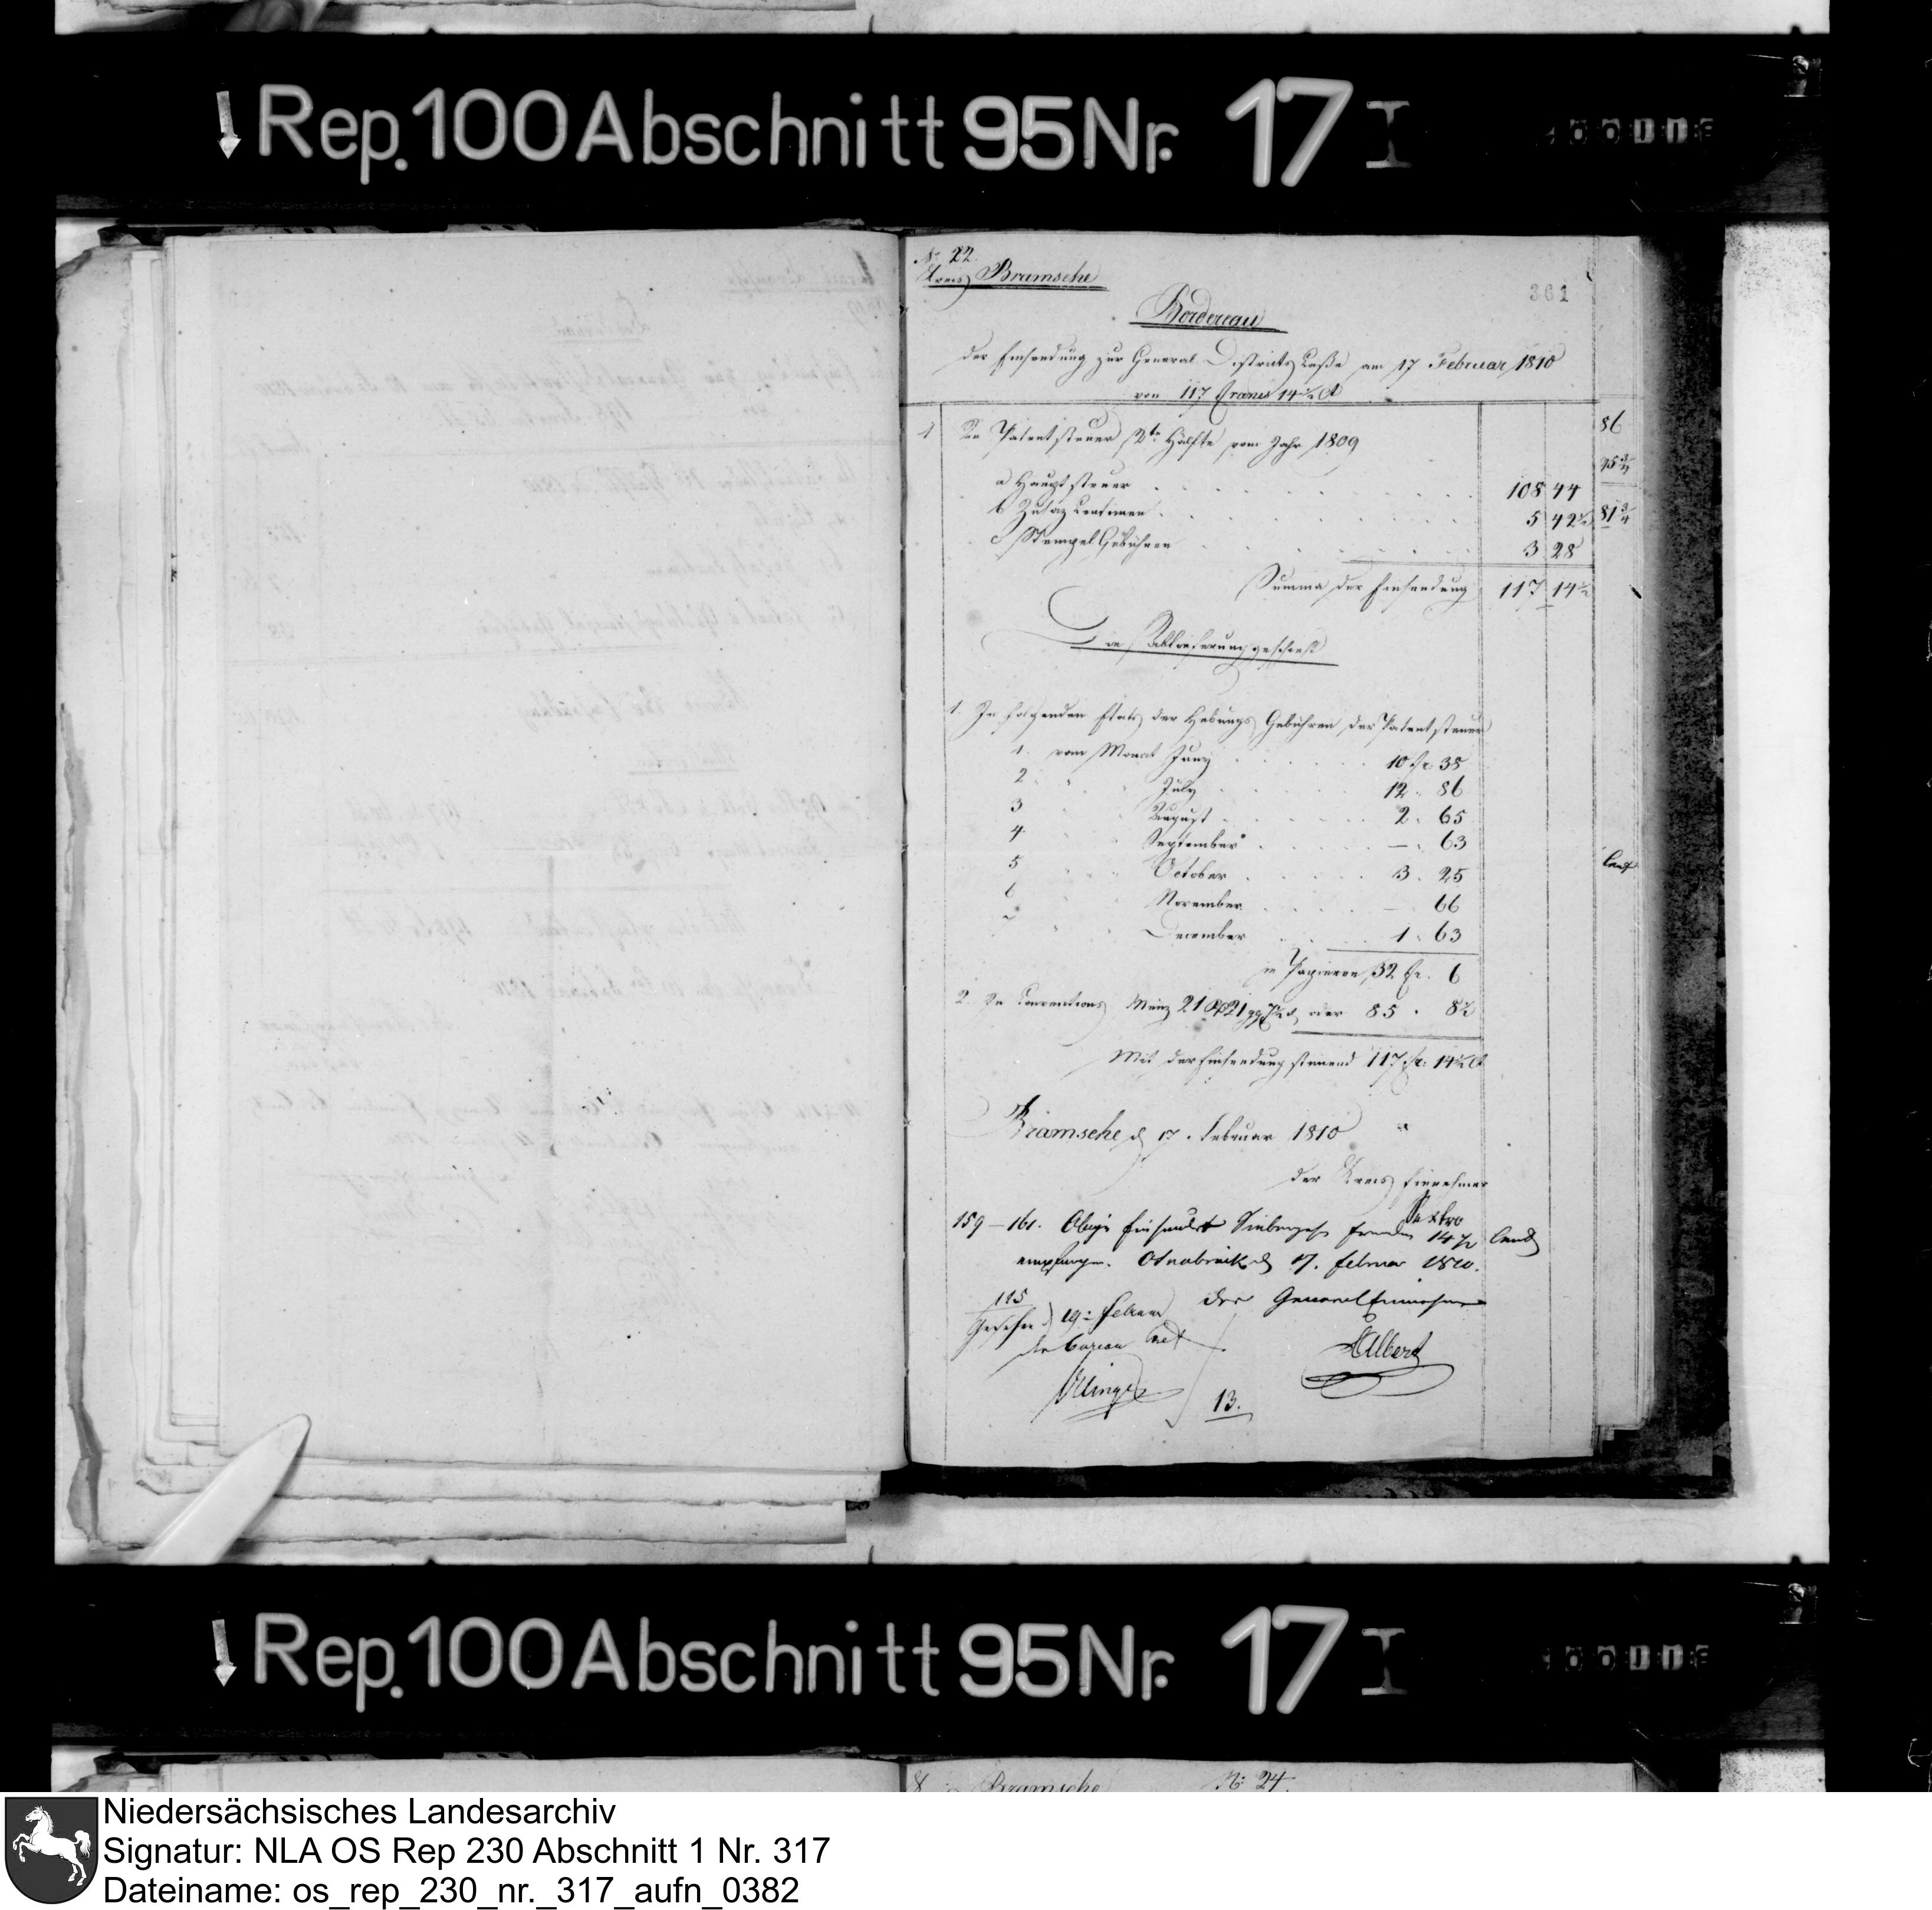 Rep. 100 Abschnitt 95 Nr. 17 I
No 22.
Kreis Bramsche
361
Bordereau
der Einsendung zur General Districts Casse am 17 Februar 1810
von 117 Francs 14½ Ct
1 An Patentsteuer 2te Hälfte vom Jahr 1809
86
a Hauptsteuer 108 44
b Zusaz Centimen 5 42½
81¾
c Stempel Gebühren 3 28
Summa der Einsendung 117 14½
Die Ablieferung geschieht
1. In folgenden Etats der Hebungs Gebühren der Patentsteuer
1. vom Monat Juny 10 fr. 38
2 " " July 12. 86
3 " " August 2. 65
4 " " September —. 63
5 " " October 3. 25
6 " " November — 66
7 " " December 1. 63
in Papieren 32 Fr. 6
2. In Conventions Münz 21 21 oder 85. 8½
Mit der Einsendung stimmend 117 fr. 14½ Ct
Bramsche d 17. Februar 1810
der Kreis Einnehmer
Sextro
159 – 161. Obige Einhundert Siebenzehn Franken 14½ Cent
empfangen. Osnabrück d 17. Februar 1810.
der General Einnehmer
115
Gesehen d 19. Februar
der Bureau Chef
Albert
13.
Rep. 100 Abschnitt 95 Nr. 17 I
Bramsche No 24.
Niedersächsisches Landesarchiv
Signatur: NLA OS Rep 230 Abschnitt 1 Nr. 317
Dateiname: os_rep_230_nr._317_aufn_0382